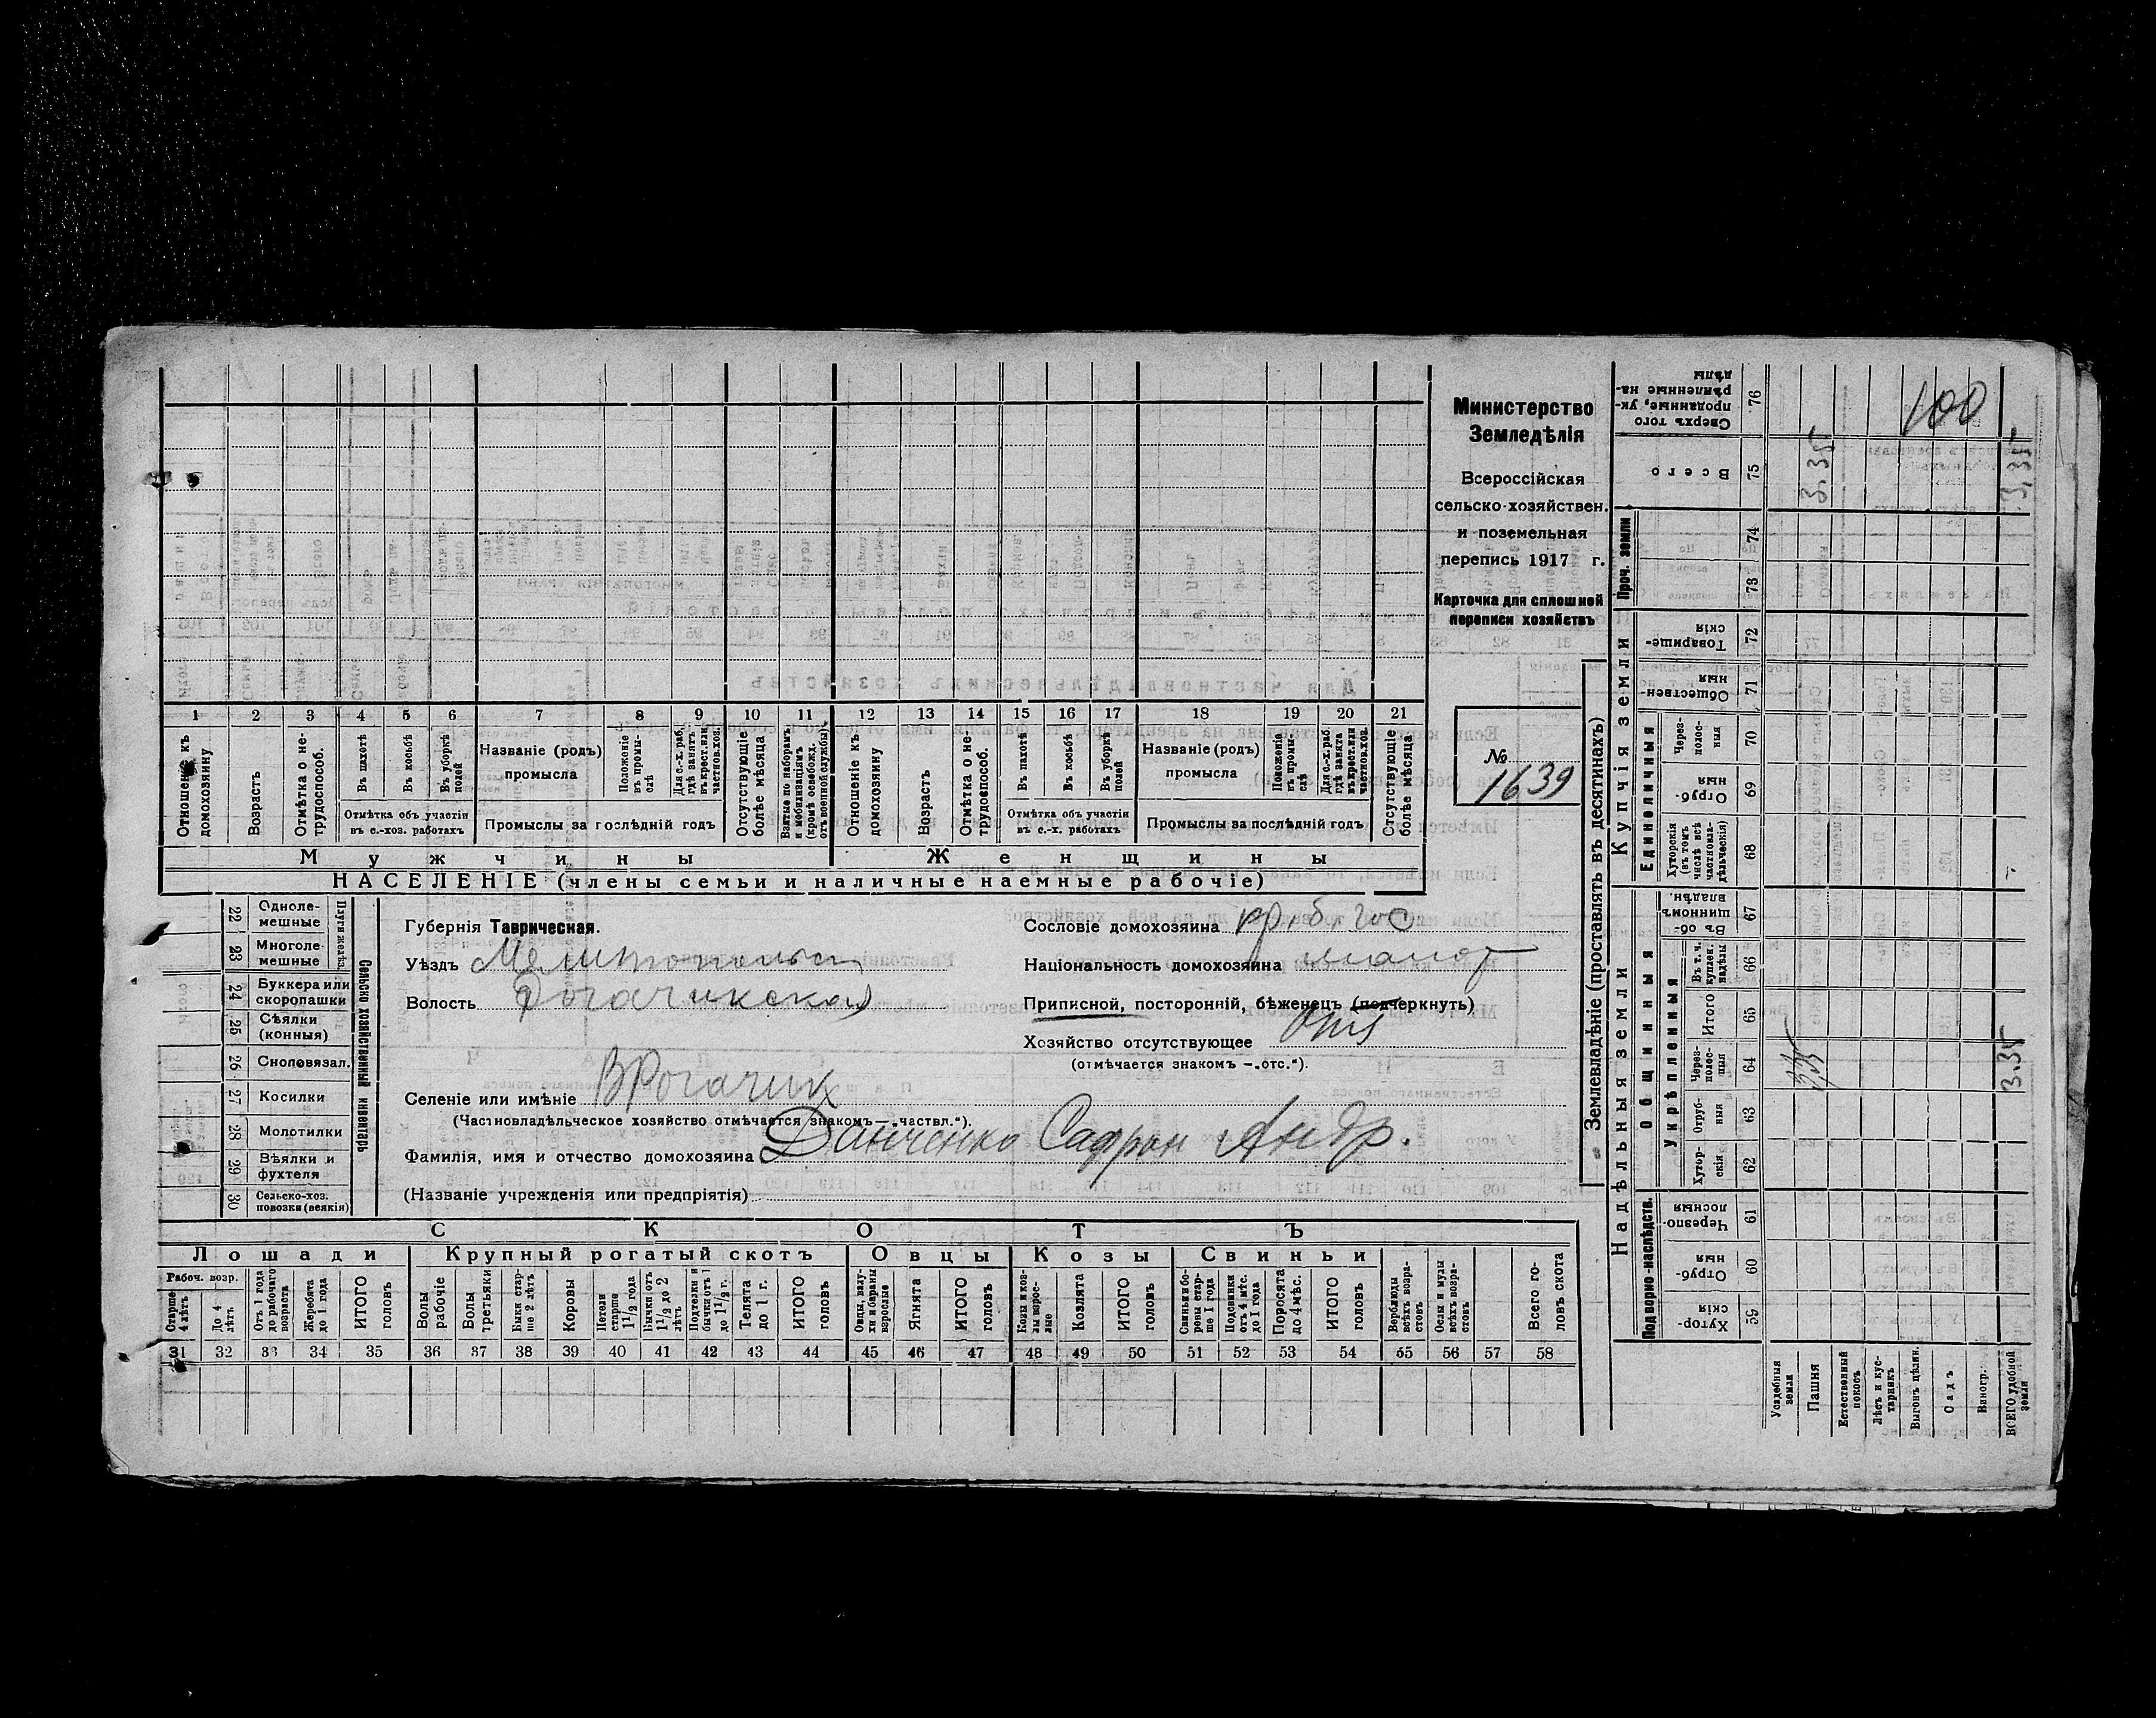 Министерство
Земледѣлія
Всероссійская
сельско-хозяйствен.
и поземельная
перепись 1917 г.
Карточка для сплошной
переписи хозяйствъ
№
1639
1 2 3 4 5 6 7 8 9 10 11 12 13 14 15 16 17 18 19 20 21
Отношеніе къ домохозяину
Возрастъ
Отмѣтка о нетрудоспособ.
Въ пахотѣ
Въ косьбѣ
Въ уборкѣ полей
Отмѣтка объ участіи
въ с.-хоз. работахъ
Названіе (родъ)
промысла
Положеніе въ промыслѣ
Для с.-х. раб. гдѣ занятъ въ крест. или частнов. хоз.
Промыслы за послѣдній годъ
Отсутствующіе болѣе мѣсяца
Взятые по наборамъ и мобилизаціямъ (кромѣ освобожд. отъ военной службы)
Отношеніе къ домохозяину
Возрастъ
Отмѣтка о нетрудоспособ.
Въ пахотѣ
Въ косьбѣ
Въ уборкѣ полей
Отмѣтка объ участіи
въ с.-х. работахъ
Названіе (родъ)
промысла
Положеніе въ промыслѣ
Для с.-х. раб. гдѣ занята въ крест. или частнов. хоз.
Промыслы за послѣдній годъ
Отсутствующіе болѣе мѣсяца
Мужчины
Женщины
НАСЕЛЕНІЕ (члены семьи и наличные наемные рабочіе)
Сельско-хозяйственный инвентарь
Плуги желѣз.
22 Однолемешные
23 Многолемешные
24 Буккера или скоропашки
25 Сѣялки (конныя)
26 Сноповязал.
27 Косилки
28 Молотилки
29 Вѣялки и фухтеля
30 Сельско-хоз. повозки (всякія)
Губернія Таврическая.
Уѣздъ Мелитопольск
Волость Рогачикская
Селеніе или имѣніе ВРогачик
(Частновладѣльческое хозяйство отмѣчается знакомъ — „частвл.“).
Фамилія, имя и отчество домохозяина Данченко Сафрон Андр.
(Названіе учрежденія или предпріятія)
Сословіе домохозяина кр. б. гос
Національность домохозяина малор
Приписной, посторонній, бѣженецъ (подчеркнуть)
Хозяйство отсутствующее
(отмѣчается знакомъ — „отс.“).
СКОТЪ
Лошади
Крупный рогатый скотъ
Овцы
Козы
Свиньи
Рабоч. возр.
Старше 4 лѣтъ
До 4 лѣтъ
Отъ 1 года до рабочаго возраста
Жеребята до 1 года
ИТОГО головъ
Волы рабочіе
Волы третьяки
Быки старше 2 лѣтъ
Коровы
Нетели старше 1 1/2 года
Бычки отъ 1 1/2 до 2 лѣтъ
Подтелки и бычки отъ 1 до 1 1/2 г.
Телята до 1 г.
ИТОГО головъ
Овцы, валухи и бараны взрослые
Ягнята
ИТОГО головъ
Козы и козлы взрослые
Козлята
ИТОГО головъ
Свиньи и боровы старше 1 года
Подсвинки отъ 4 мѣс. до 1 года
Поросята до 4 мѣс.
ИТОГО головъ
Верблюды всѣхъ возрастовъ
Ослы и мулы всѣхъ возрастовъ
Всего головъ скота
31 32 33 34 35 36 37 38 39 40 41 42 43 44 45 46 47 48 49 50 51 52 53 54 55 56 57 58
Землевладѣніе (проставлять въ десятинахъ)
Надѣльныя земли
Купчія земли
Проч. земли
Подворно-наслѣдств.
Общинныя
Укрѣпленныя
Единоличныя
Хуторскія 59
Отрубныя 60
Черезполосныя 61
Хуторскія 62
Отрубныя 63
Черезполосныя 64
Итого 65
Въ т. ч. куплен. надѣлы 66
Въ общинномъ владѣн. 67
Хуторскія (въ томъ числѣ всѣ частновладѣльческія) 68
Отрубныя 69
Черезполосныя 70
Общественныя 71
Товарищескія 72
73
74
Всего 75
Сверхъ того проданные, укрѣпленные надѣлы 76
Усадебныя земли
Пашня
3.35
3.35
Естественный покосъ
Лѣсъ и кустарникъ
Выгонъ цѣлин.
Садъ
Виногр.
ВСЕГО удобной земли
3.35
3,35
100